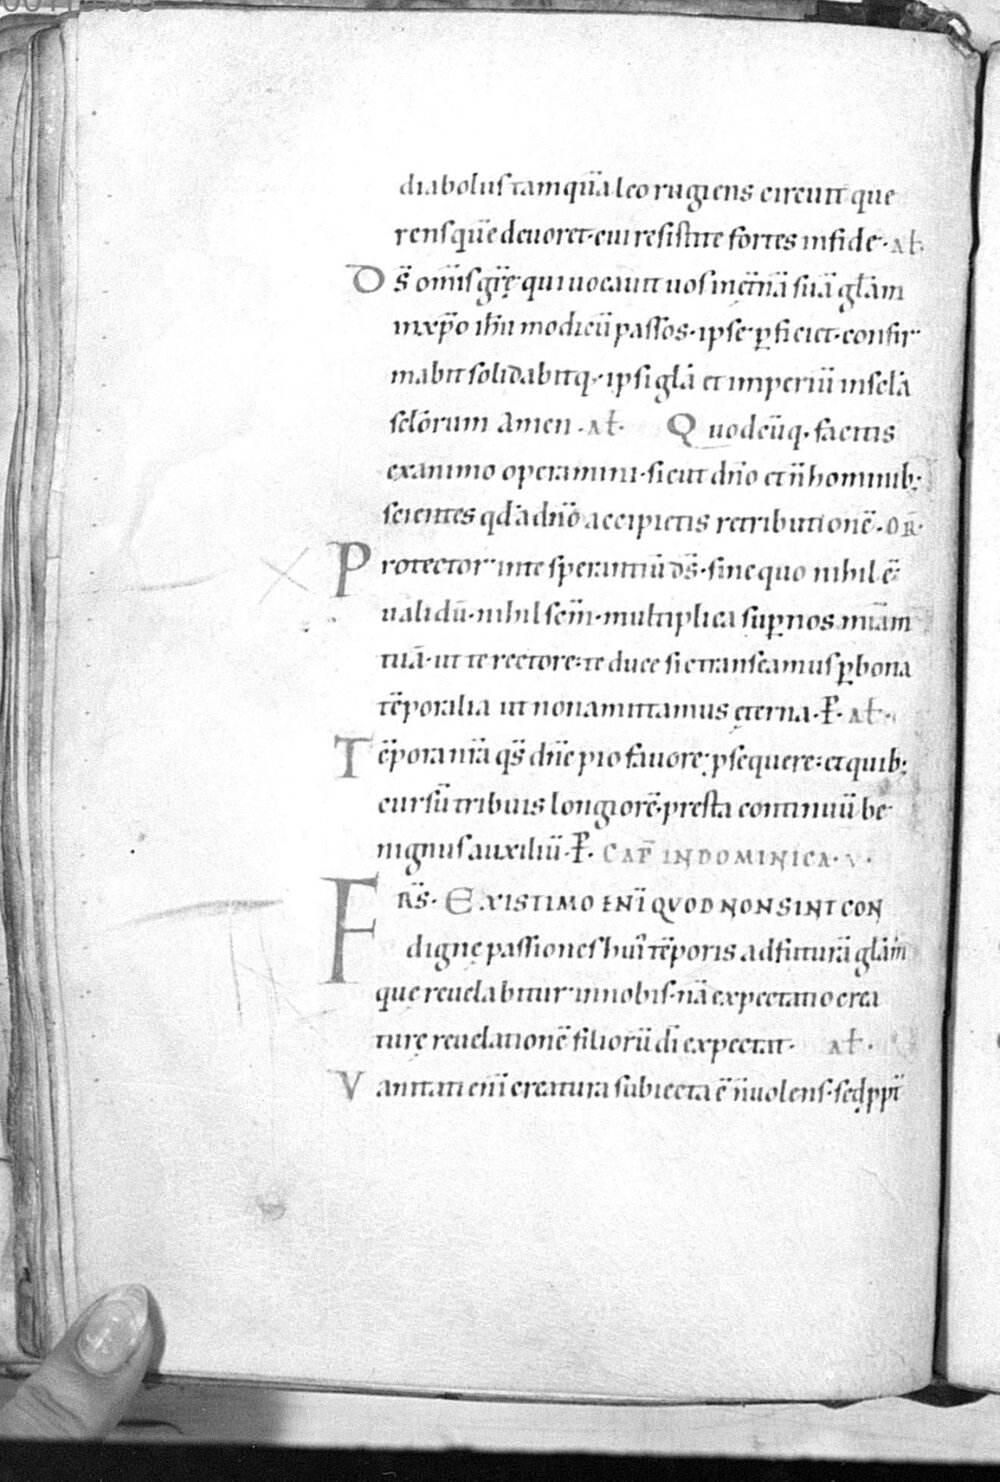 diabolus tamquā leo rugiens circuit que
rens quē deuoret· cui resistite fortes in fide· al̄·
Ds̄ om̄is gr̄ę qui uocauit uos in ęt̄nā suā gl̄am
in xp̄o ih̄u modicū passos· ipse p̱ficiet· confir
mabit solidabitq;· ipsi gl̄a et imperiū in sc̄la
sc̄lorum Amen· al̄· Quodcūq; facitis
ex animo operamini· sicut dn̄o et n̄ hominib;
scientes qd̄ a dn̄o accipietis retributionē· OR̄·
Protector in te sperantiū ds̄· sine quo nihil ē
ualidū· nihil sc̄m· multiplica sup̱ nos mīam
tuā· ut te rectore· te duce sic transeamus p̱ bona
tēporalia ut non amittamus ęterna· P̱· al̄·
Tēpora nr̄a qs̄ dn̄e pio fauore p̱sequere· et quib;
cursū tribuis longiorē· presta continuū be
nignus auxiliū· P̱· CAP̄ IN DOMINICA· V·
FRS̄· EXISTIMO ENĪ QVOD NON SINT CON
dignę passiones hui᷒ tēporis ad futurā gl̄am
que reuelabitur in nobis· nā expectatio crea
turę reuelationē filiorū dī expectat· al̄·
Vanitati enī creatura subiecta ē n̄ uolens· sed ppt̄